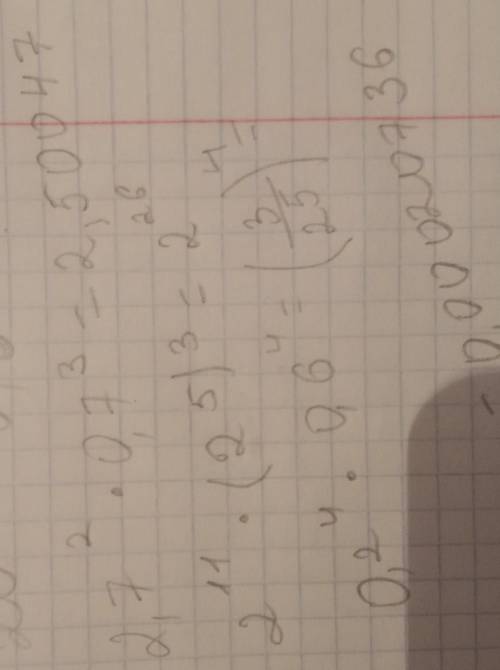 2,7² · 0,7³ = 2,50047
2¹¹ · (2⁵)³ = 2²⁶
0,2⁴ · 0,6⁴ = (3/25)⁴ =
= 0,00020736